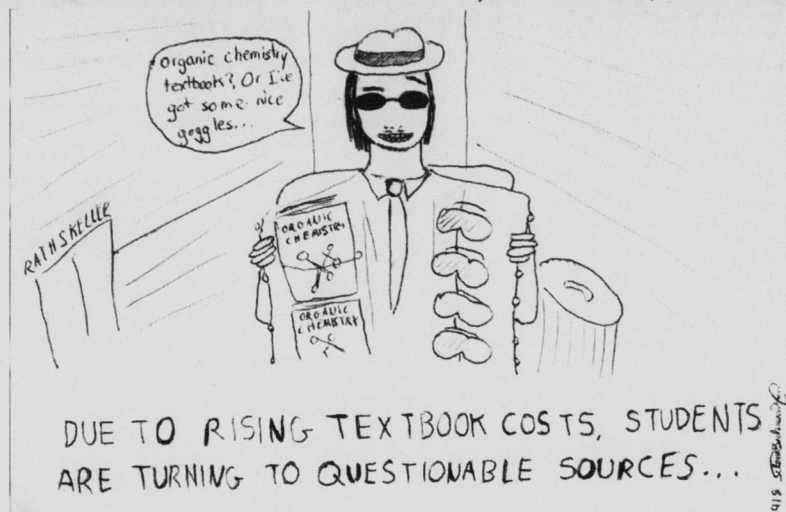 organic chemistry
textbook? Or I've
got some nice
goggles...
RATHSKELLER
ORGANIC
CHEMISTRY
ORGANIC
CHEMISTRY
DUE TO RISING TEXTBOOK COSTS, STUDENTS
ARE TURNING TO QUESTIONABLE SOURCES...